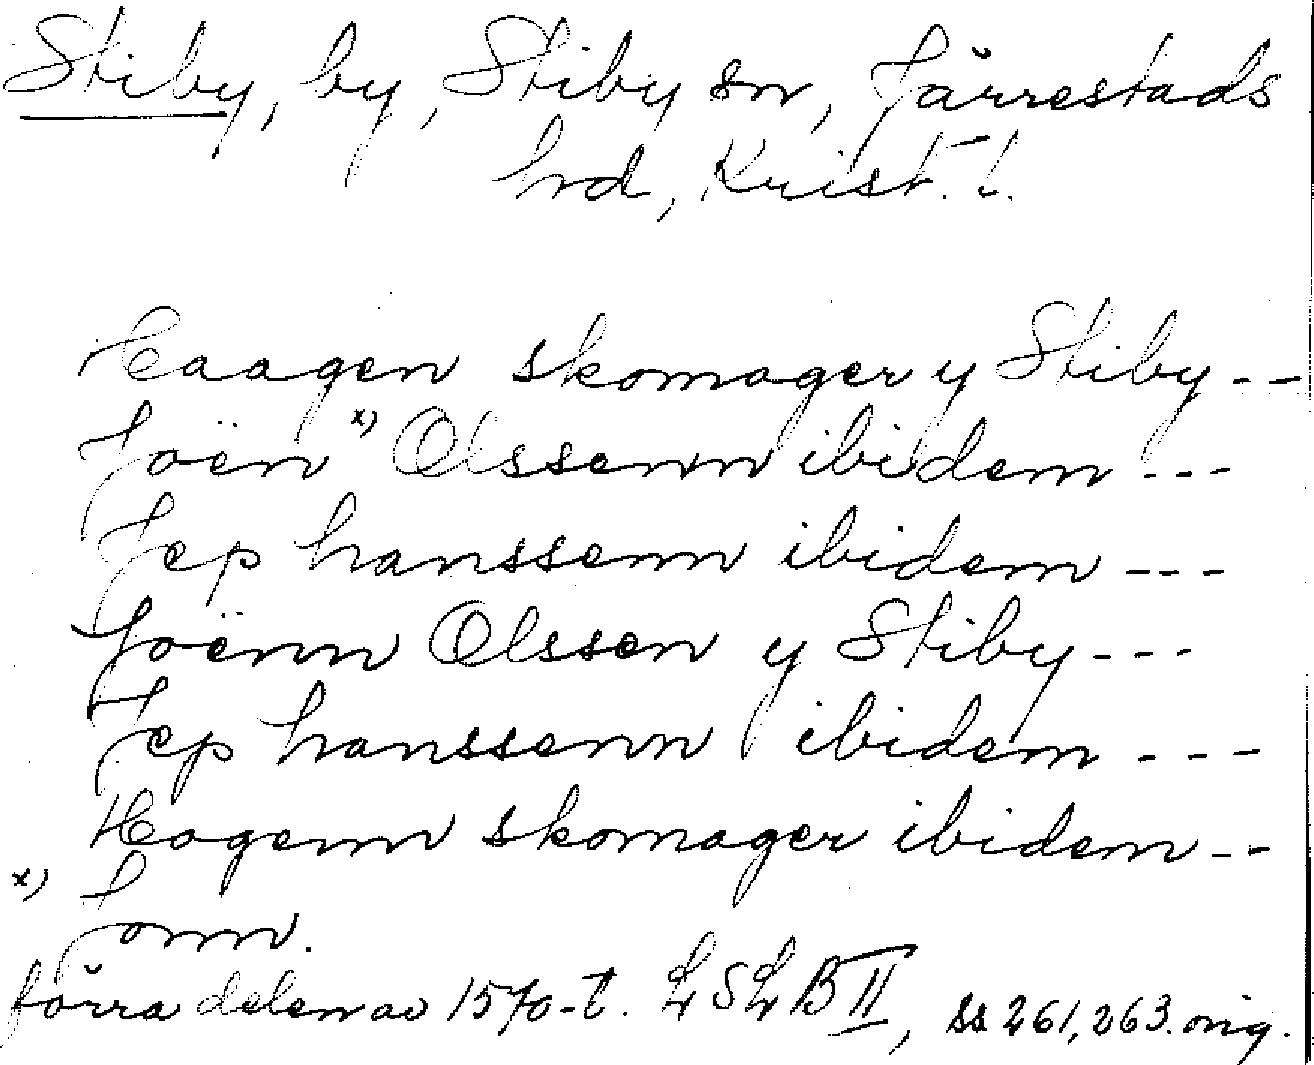 Stiby, by, Stiby sn, Järrestads
hrd, Krist. l.
Haagen skomager y Stiby --
Joën x) Olssenn ibidem ---
Jep hanssenn ibidem ---
Joënn Olssen y Stiby ---
Jep hanssenn ibidem ---
Hogenn skomager ibidem --
x) Jonn.
förra delen av 1570-t. LSLB II, ss 261, 263. orig.